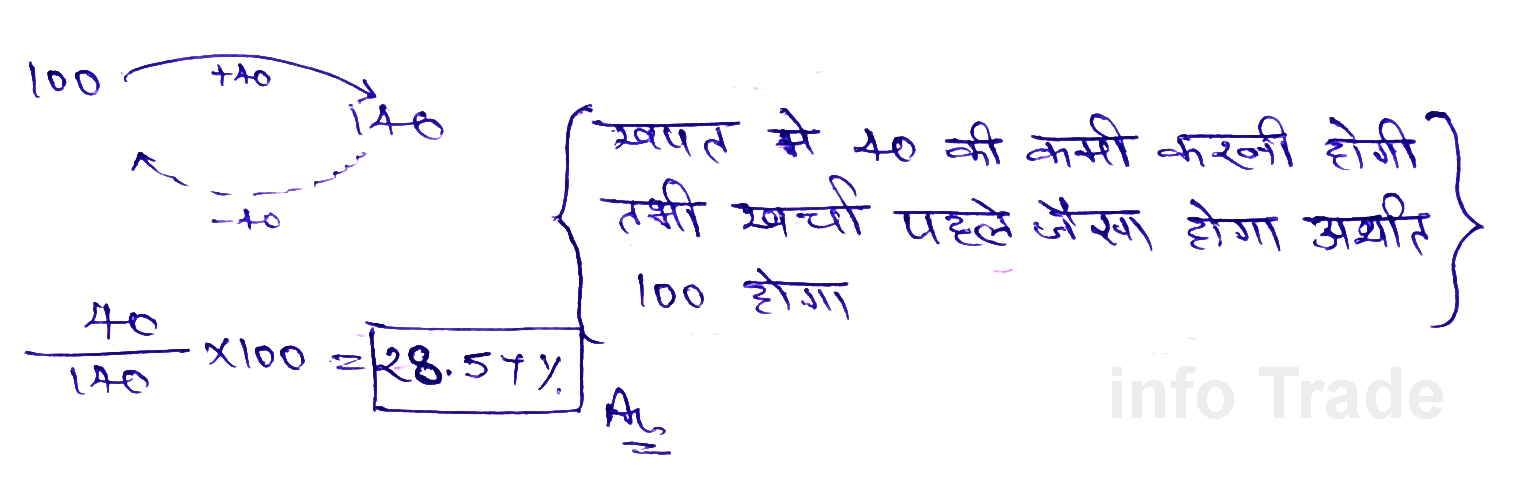 100 +40 140
-40
खपत मे 40 की कमी करनी होगी
तभी खर्चा पहले जैसा होगा अर्थात
100 होगा
40/140 ×100 = 28.57%
Ans
info Trade